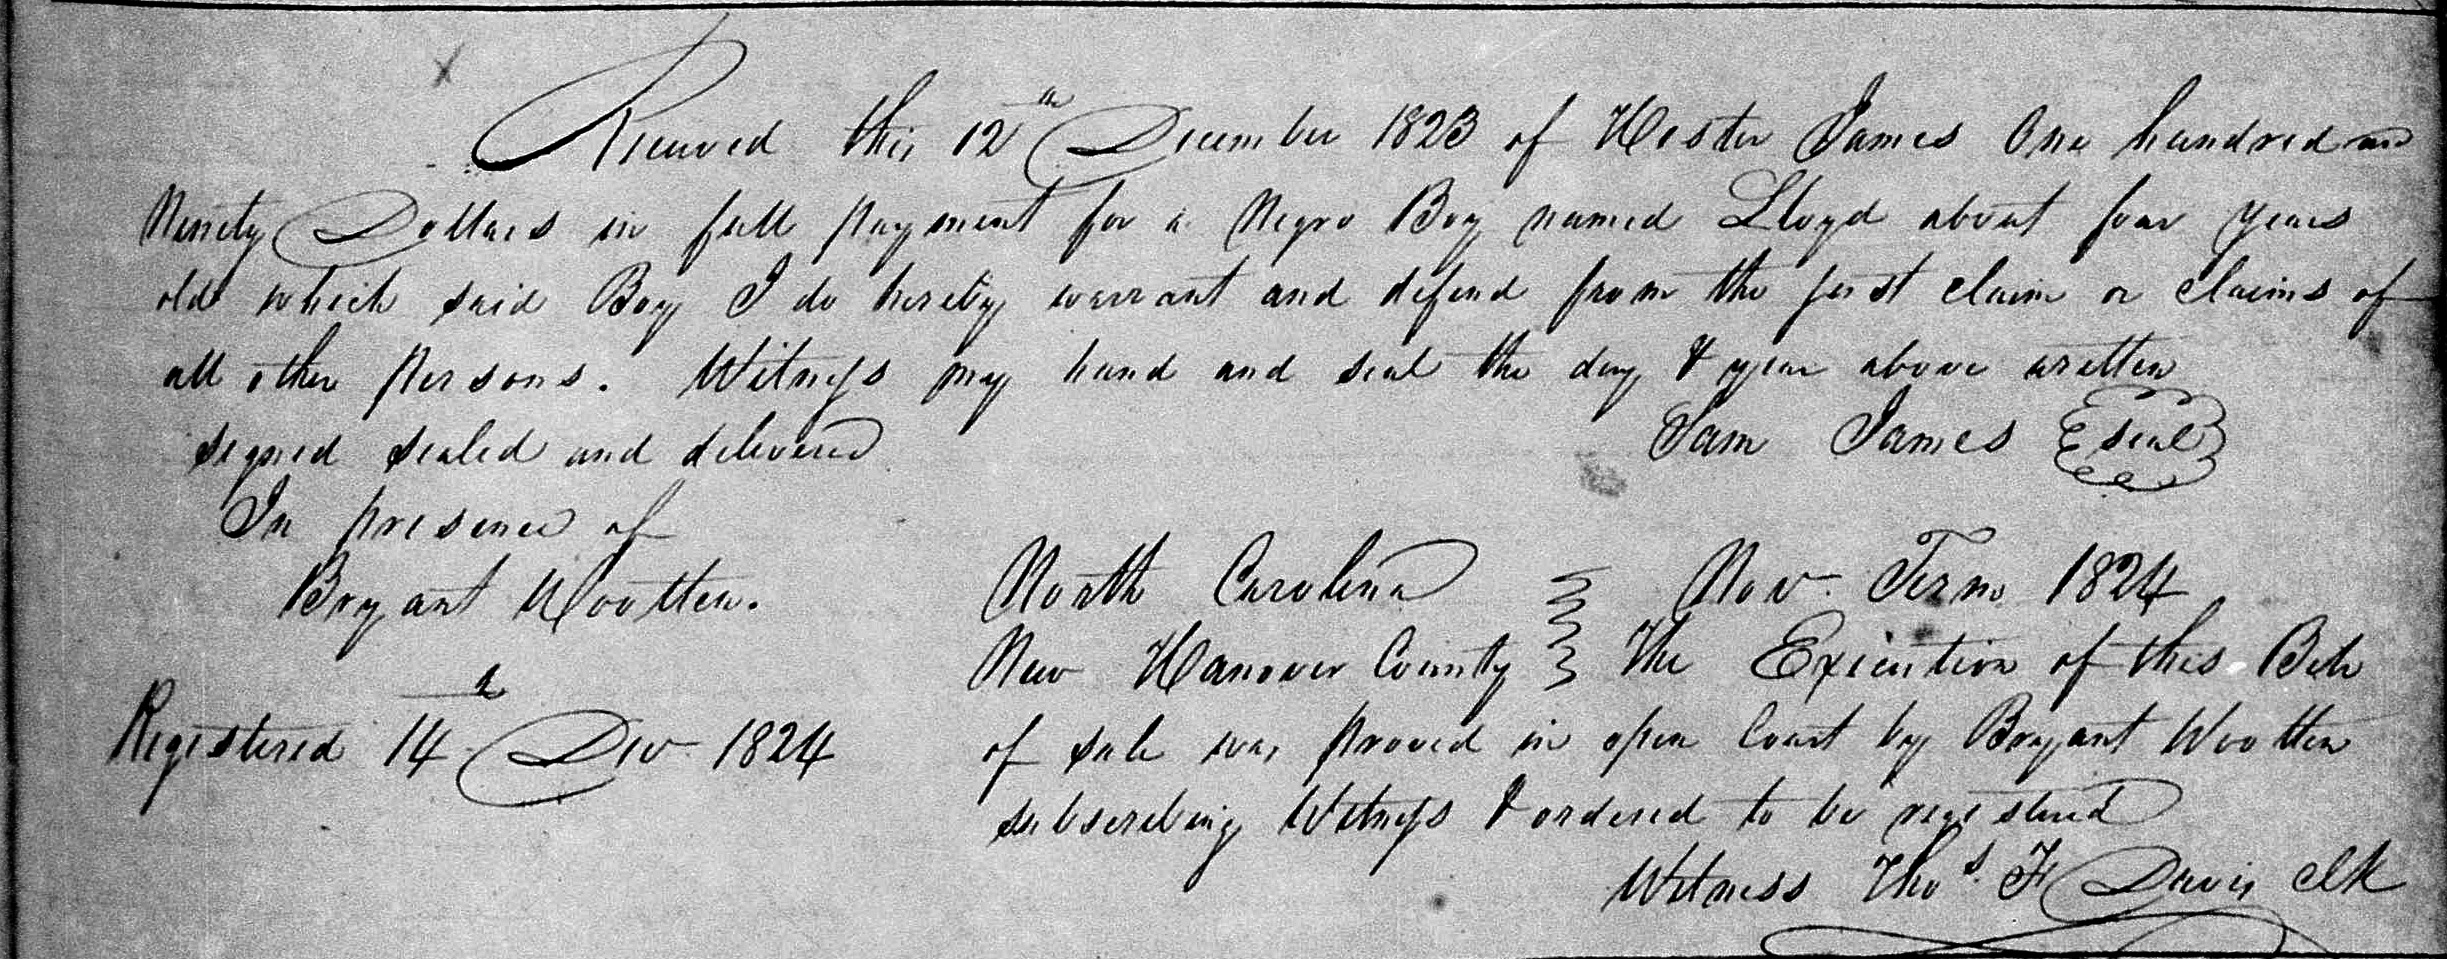 Received this 12th December 1823 of Hester James One hundred and
Ninety Dollars in full payment for a Negro Boy named Lloyd about four years
old which said Boy I do hereby warrant and defend from the just claim or claims of
all other persons. Witness my hand and seal the day & year above written
signed sealed and delivered Sam James seal
In presence of
Bryant Wootten.
North Carolina Nov. Term 1824
New Hanover County The Execution of this Bill
of sale was proved in open Court by Bryant Wootten
subscribing Witness & ordered to be registered
Witness Thos. F Davis clk
Registered 14th Dec 1824